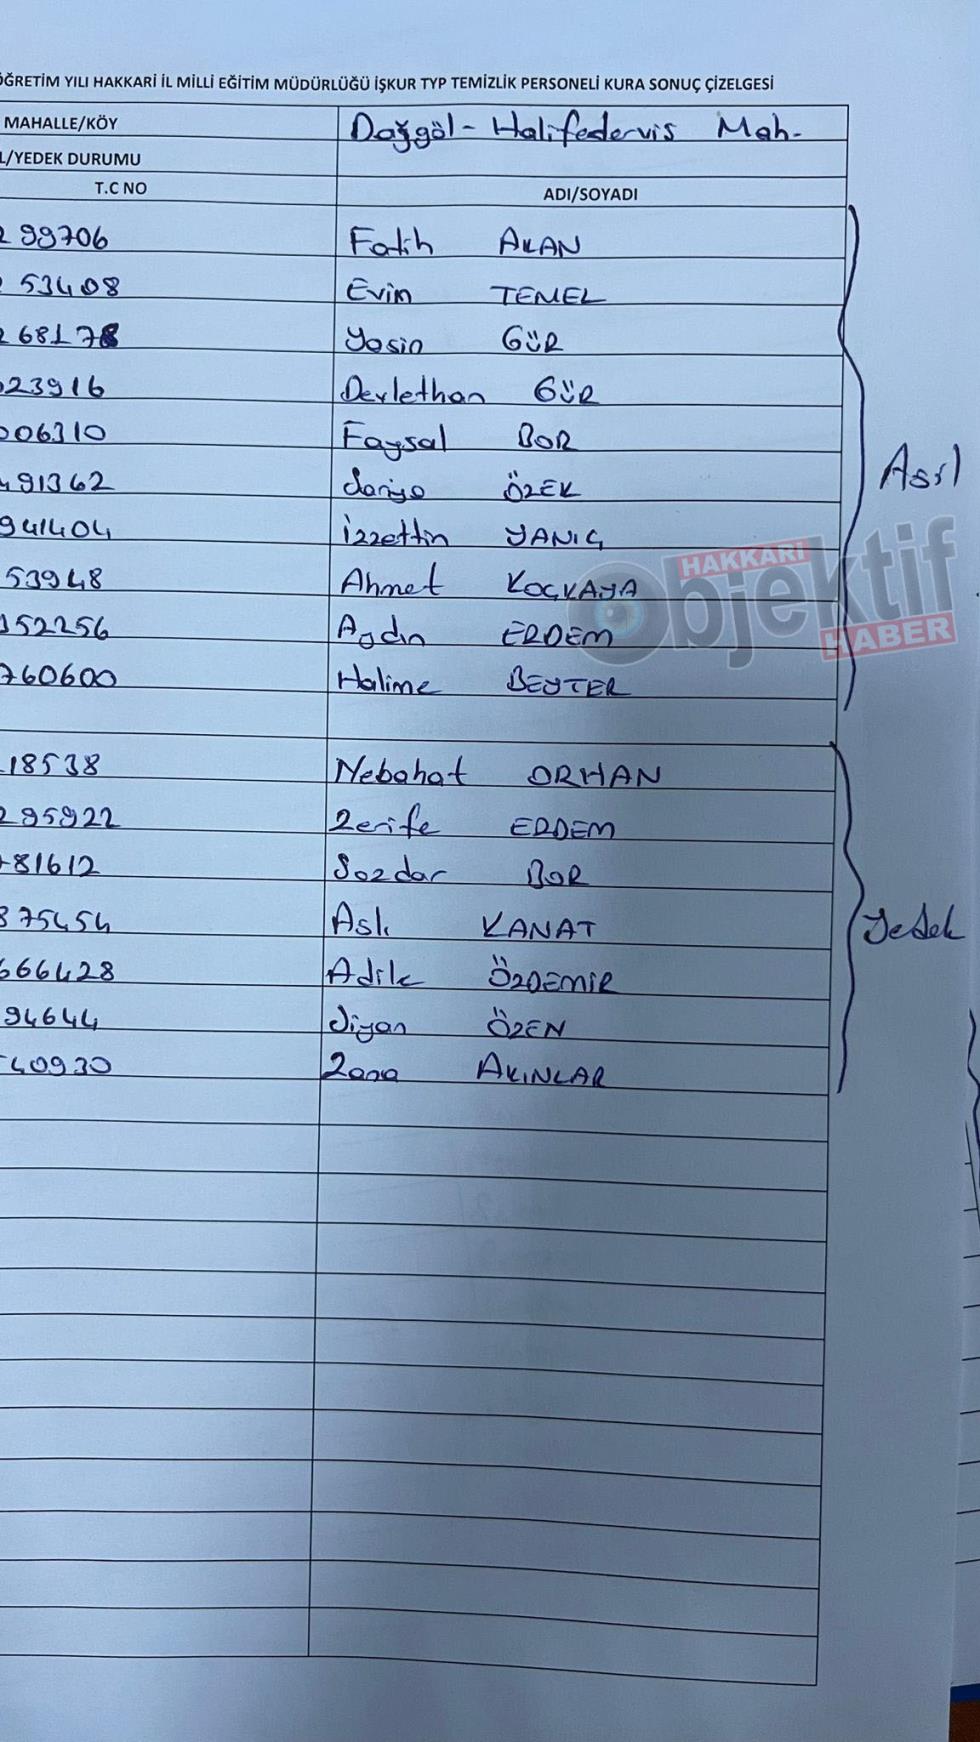 ÖĞRETİM YILI HAKKARİ İL MİLLİ EĞİTİM MÜDÜRLÜĞÜ İŞKUR TYP TEMİZLİK PERSONELİ KURA SONUÇ ÇİZELGESİ
MAHALLE/KÖY Dağgöl - Halifedervis Mah.
L/YEDEK DURUMU
T.C NO ADI/SOYADI
299706 Fatih AKAN
53408 Evin TEMEL
268178 Yasin GÜR
023916 Devlethan GÜR
006310 Faysal BOR
491362 Sariye ÖZEK
Asıl
941404 İzzettin YANIÇ
53948 Ahmet KOÇKAYA
152256 Aydın ERDEM
760600 Halime BEYTER
HAKKARI
Objektif
HABER
18538 Nebahat ORHAN
295922 Zerife ERDEM
81612 Sozdar BOR
375454 Aslı KANAT
Yedek
666428 Adile ÖZDEMİR
94644 Jiyan ÖZEN
40930 Zana AKINLAR